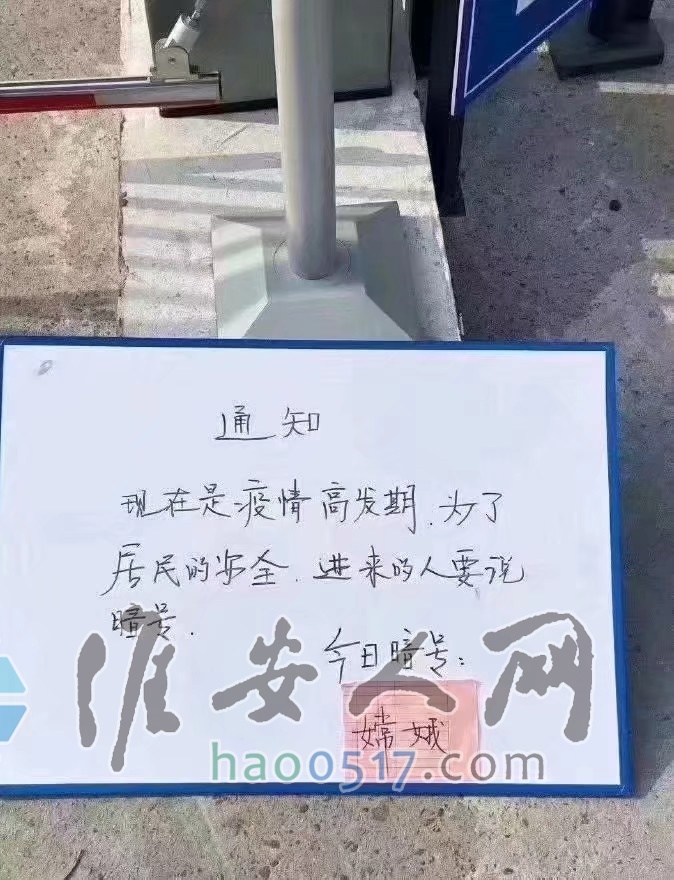 通知
现在是疫情高发期.为了
居民的安全.进来的人要说
暗号.
今日暗号:
嫦娥
淮安人网
hao0517.com